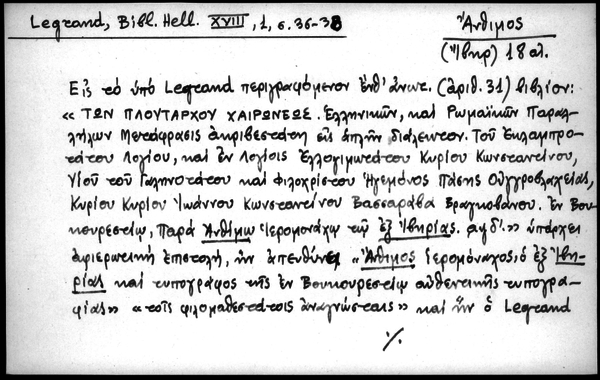 Legrand, Bibl. Hell. XVIII, 1, σ. 36-38
Ἄνθιμος
(Ἴβηρ) 18 αἰ.
Εἰς τὸ ὑπὸ Legrand περιγραφόμενον ἐνθ' ἀνωτ. (ἀριθ. 31) βιβλίον:
« ΤΩΝ ΠΛΟΥΤΑΡΧΟΥ ΧΑΙΡΩΝΕΩΣ. Ἑλληνικῶν, καὶ Ρωμαϊκῶν Παραλ-
λήλων Μετάφρασις ἀκριβεστάτη εἰς ἁπλῆν διάλεκτον. Τοῦ Ἐκλαμπρο-
τάτου Λογίου, καὶ ἐν Λογίοις Ἐλλογιμωτάτου Κυρίου Κωνσταντίνου,
Υἱοῦ τοῦ Γαληνοτάτου καὶ Φιλοχρίστου Ἡγεμόνος Πάσης Οὑγγροβλαχείας,
Κυρίου Κυρίου Ἰωάννου Κωνσταντίνου Βασσαράβα Βραγκοβάνου. Ἐν Βου-
κουρεστίῳ, Παρὰ Ἀνθίμῳ Ἱερομονάχῳ τῷ ἐξ Ἰβηρίας. αψδ'.» ὑπάρχει
ἀφιερωτικὴ ἐπιστολή, ἣν ἀπευθύνει « Ἄθιμος ἱερομόναχος, ὁ ἐξ Ἰβη-
ρίας καὶ τυπογράφος τῆς ἐν Βουκουρεστίῳ αὐθεντικῆς τυπογρα-
φίας» «τοῖς φιλομαθεστάτοις ἀναγνώσταις» καὶ ἣν ὁ Legrand
./.